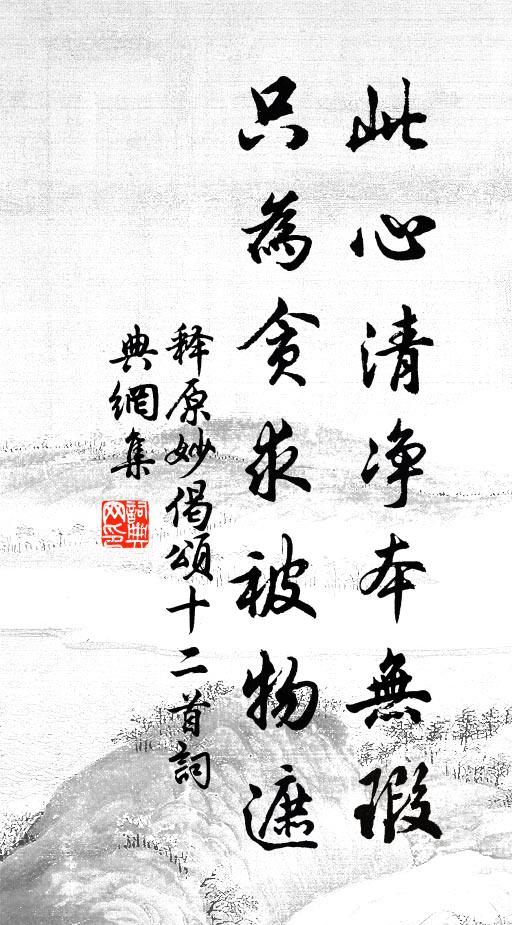 此心清净本無瑕
只為貪求被物遮
释原妙偈頌十二首詞
典網集
詞典
网印